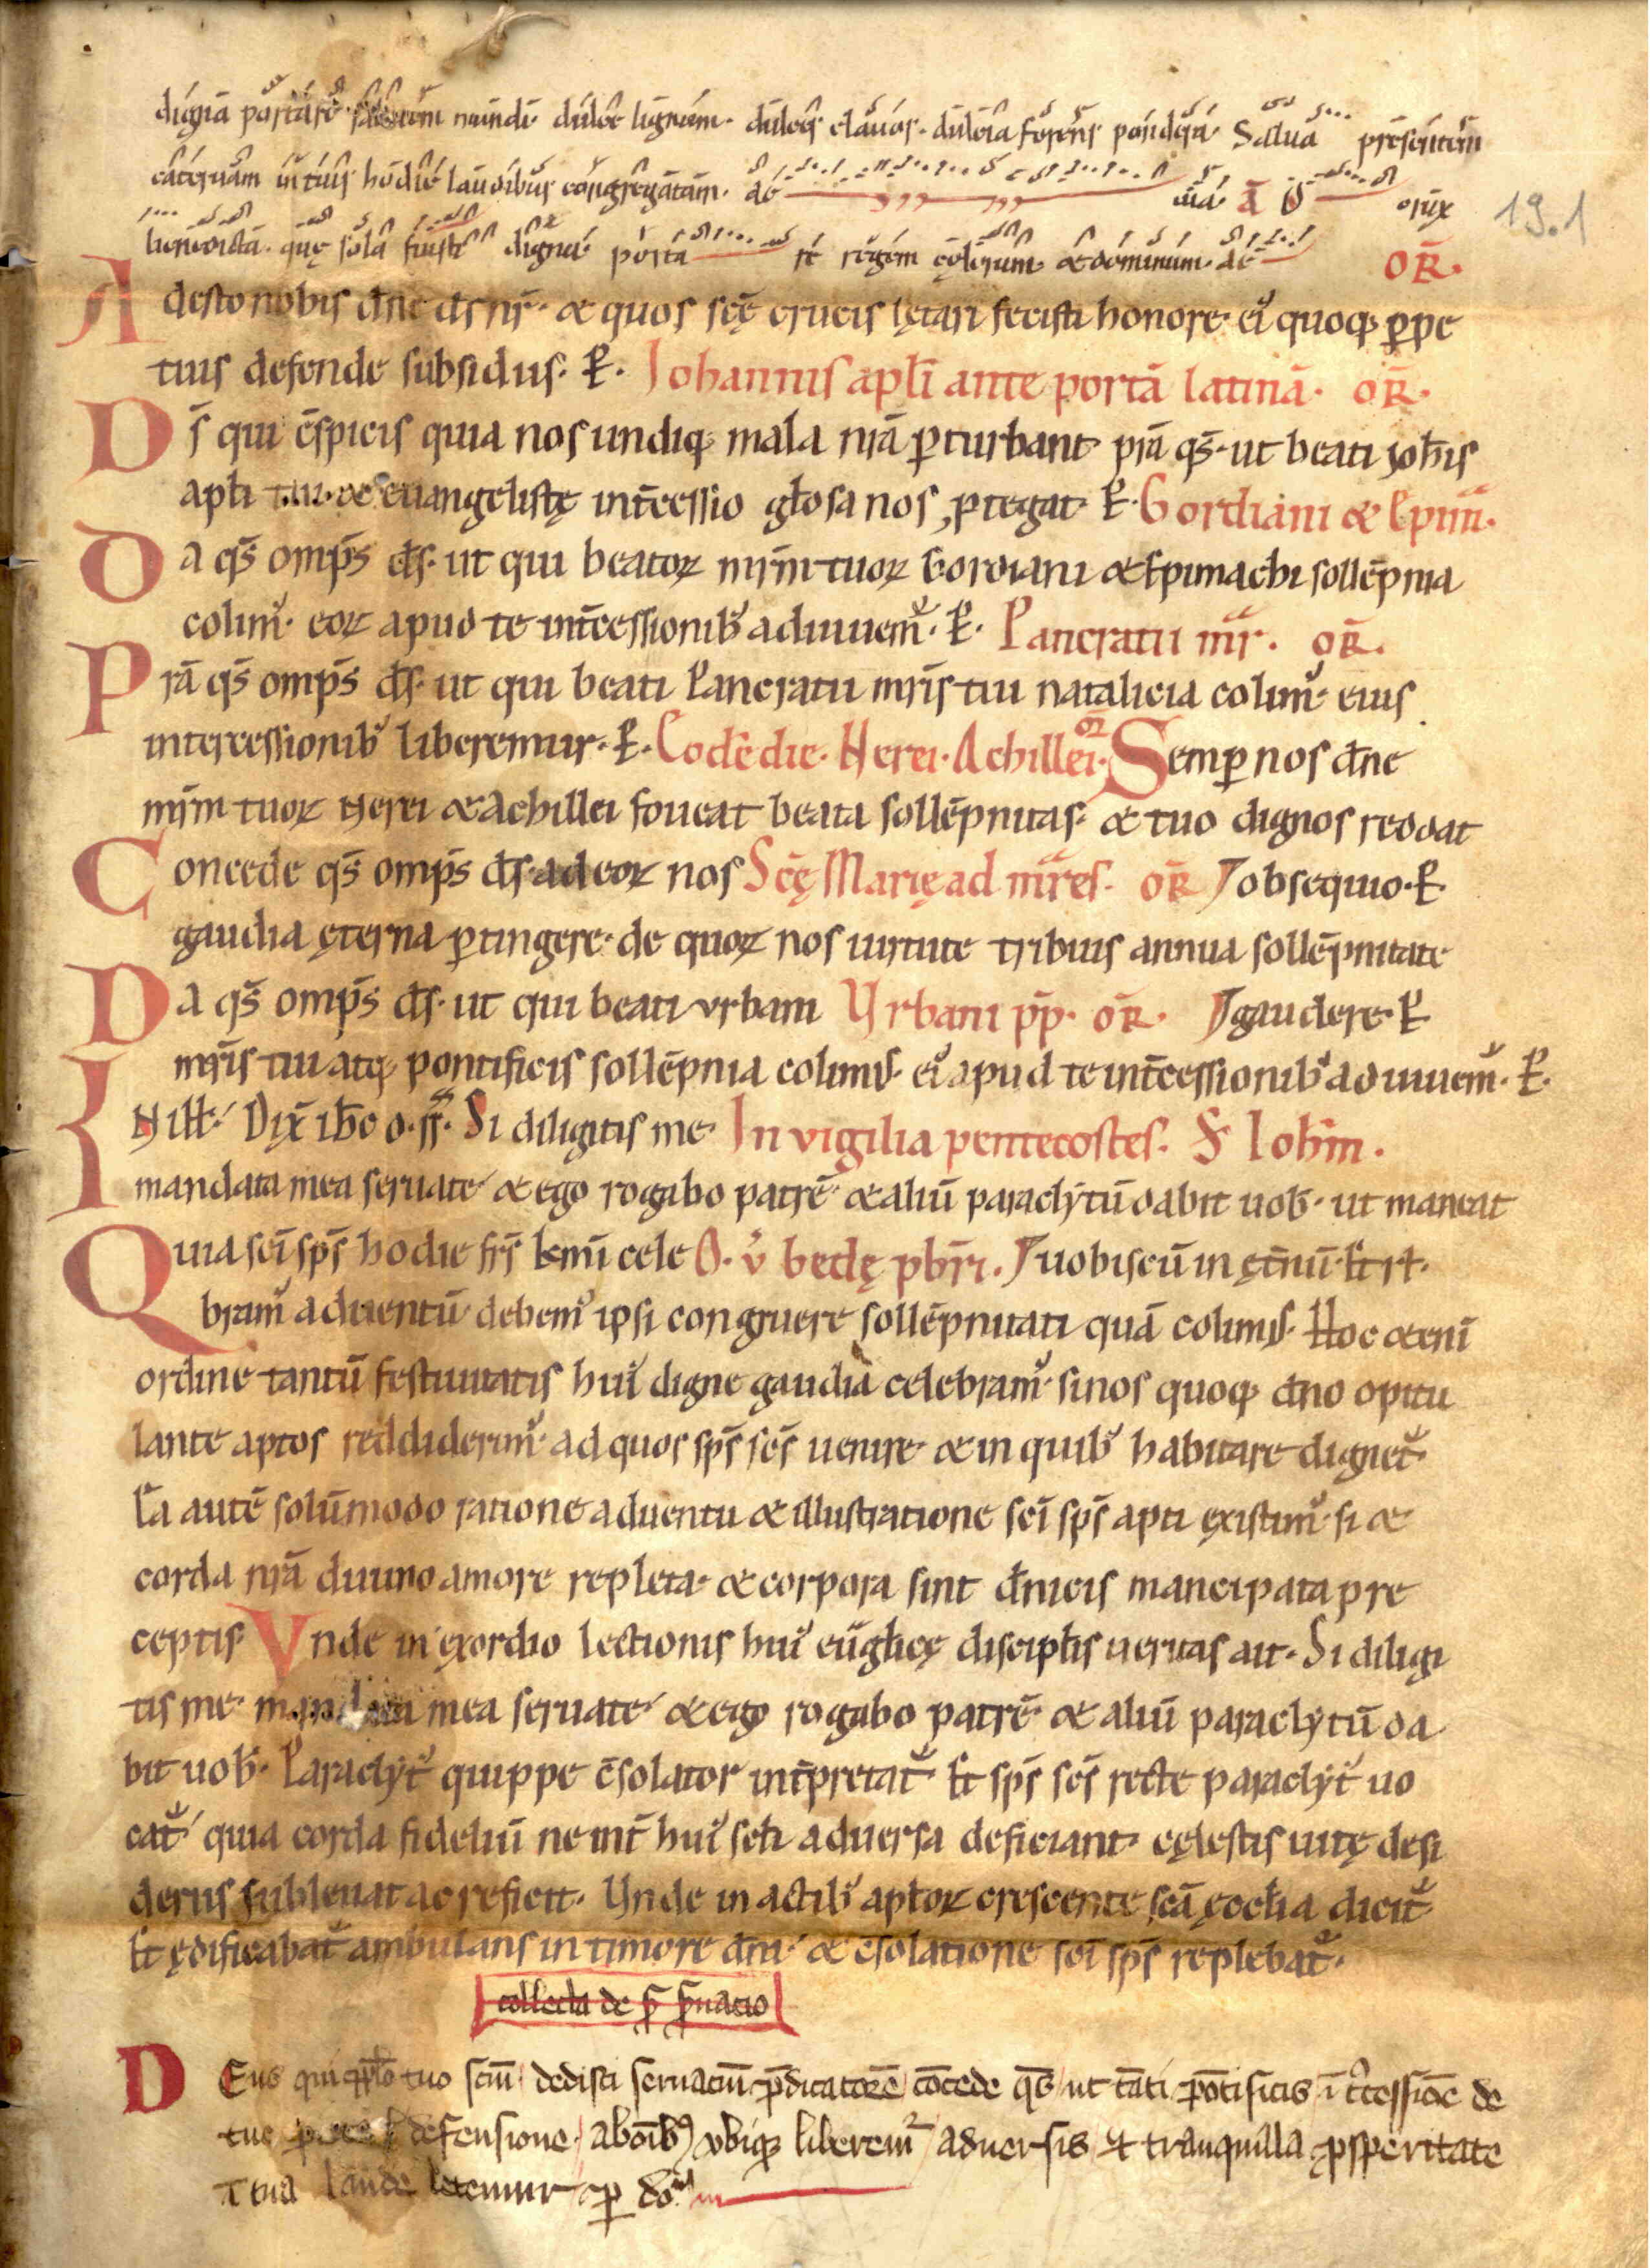 digna portare talentum mundi dulce lignum. dulces clauos. dulcia ferens pondera. Salua presentem
cateruam in tuis hodie laudibus congregatam. ae uia. a O crux
benedicta. quę sola fuisti digna porta re regem cęlorum. & dominum. ae OR̄.
Adesto nobis dn̄e ds̄ nr̄. & quos scę̄ crucis lętari fecisti honore. ei' quoq; ꝑpe
tuis defende subsidiis. P̱. Iohannis apłi ante portā latinā. OR̄.
Ds̄ qui c̄spicis quia nos undiq; mala nr̄a ꝑturbant. pr̄a qs̄. ut beati ioh̄is
apłi tui. & euangelistę int̄cessio glōsa nos ꝓtegat. P̱. Gordiani & Epim̄.
Da qs̄ omp̄s ds̄. ut qui beatoꝝ mr̄m tuoꝝ Gordiani & Epimachi sollēpnia
colim'. eoꝝ apud te int̄cessionib' adiuuem'. P̱. Pancratii mr̄. OR̄.
Pr̄a qs̄ omp̄s ds̄. ut qui beati Pancratii mr̄is tui natalicia colim'. eius
intercessionib' liberemur. P̱. Eodē die. Nerei. Achillei. OR̄ Semꝑ nos dn̄e
mr̄m tuoꝝ Nerei & Achillei foueat beata sollēpnitas. & tuo dignos reddat
Concede qs̄ omp̄s ds̄. ad eoꝝ nos Scę̄ Marię ad mr̄es. OR̄ obsequio. P̱.
gaudia ęterna ꝑtingere. de quoꝝ nos uirtute tribuis annua sollēpnitate
Da qs̄ omp̄s ds̄. ut qui beati vrbani Urbani pp̄. OR̄. gaudere. P̱
mr̄is tui atq; pontificis sollēpnia colim'. ei' apud te int̄cessionib' adiuuem'. P̱.
IN ill̵. Dix̄ ih̄c d. s̄s̄. Si diligitis me. In vigilia pentecostes. S̄ Ioh̄m.
mandata mea seruate. & ego rogabo patrē. & aliū paraclytū dabit uob̄. ut maneat
Quia sc̄i sp̄s hodie fr̄s km̄i cele O. v̄ bedę pbr̄i. uobiscū in ęt̄nū. Et rł.
bram' aduentū. debem' ipsi congruere sollēpnitati quā colim'. Hoc &enī
ordine tantū festiuitatis hui' digne gaudia celebram'. si nos quoq; dn̄o opitu
lante aptos reddiderim'. ad quos sp̄s sc̄s uenire. & in quib' habitare dignet'.
Ea autē solūmodo ratione aduentu & illustratione sc̄i sp̄s apti ęxistim'. si &
corda nr̄a diuino amore repleta. & corpora sint dn̄icis mancipata pre
ceptis. Vnde in ęxordio lectionis hui' eūgł̄icę discipłis ueritas ait. Si diligi
tis me. mandata mea seruate. & ego rogabo patrē. & aliū paraclytū da
bit uob̄. Paraclyt' quippe c̄solator int̄pretat'. Et sp̄s sc̄s recte paraclyt' uo
cat'. quia corda fideliū ne int̄ hui' scłi aduersa deficiant. cęlestis uitę desi
deriis subleuat ac reficit. Unde in actib' apłoꝝ crescente sc̄a ęccłia dicit'
Et ędificabat' ambulans in timore dn̄i. & c̄solatione sc̄i sp̄s replebat'.
collecta de s̄ s̄uacio
DEus qui pp̄lo tuo sc̄m dedisti seruaciū p̄dicatorē cōcede qs̄ ut tāti pōtificis ī t̄cessiōe de
tue defensione ab oīb' vbiq; liberem' aduersis et tranquilla ꝓsperitate
i tua laude letemur ꝑ do͞m
19.1